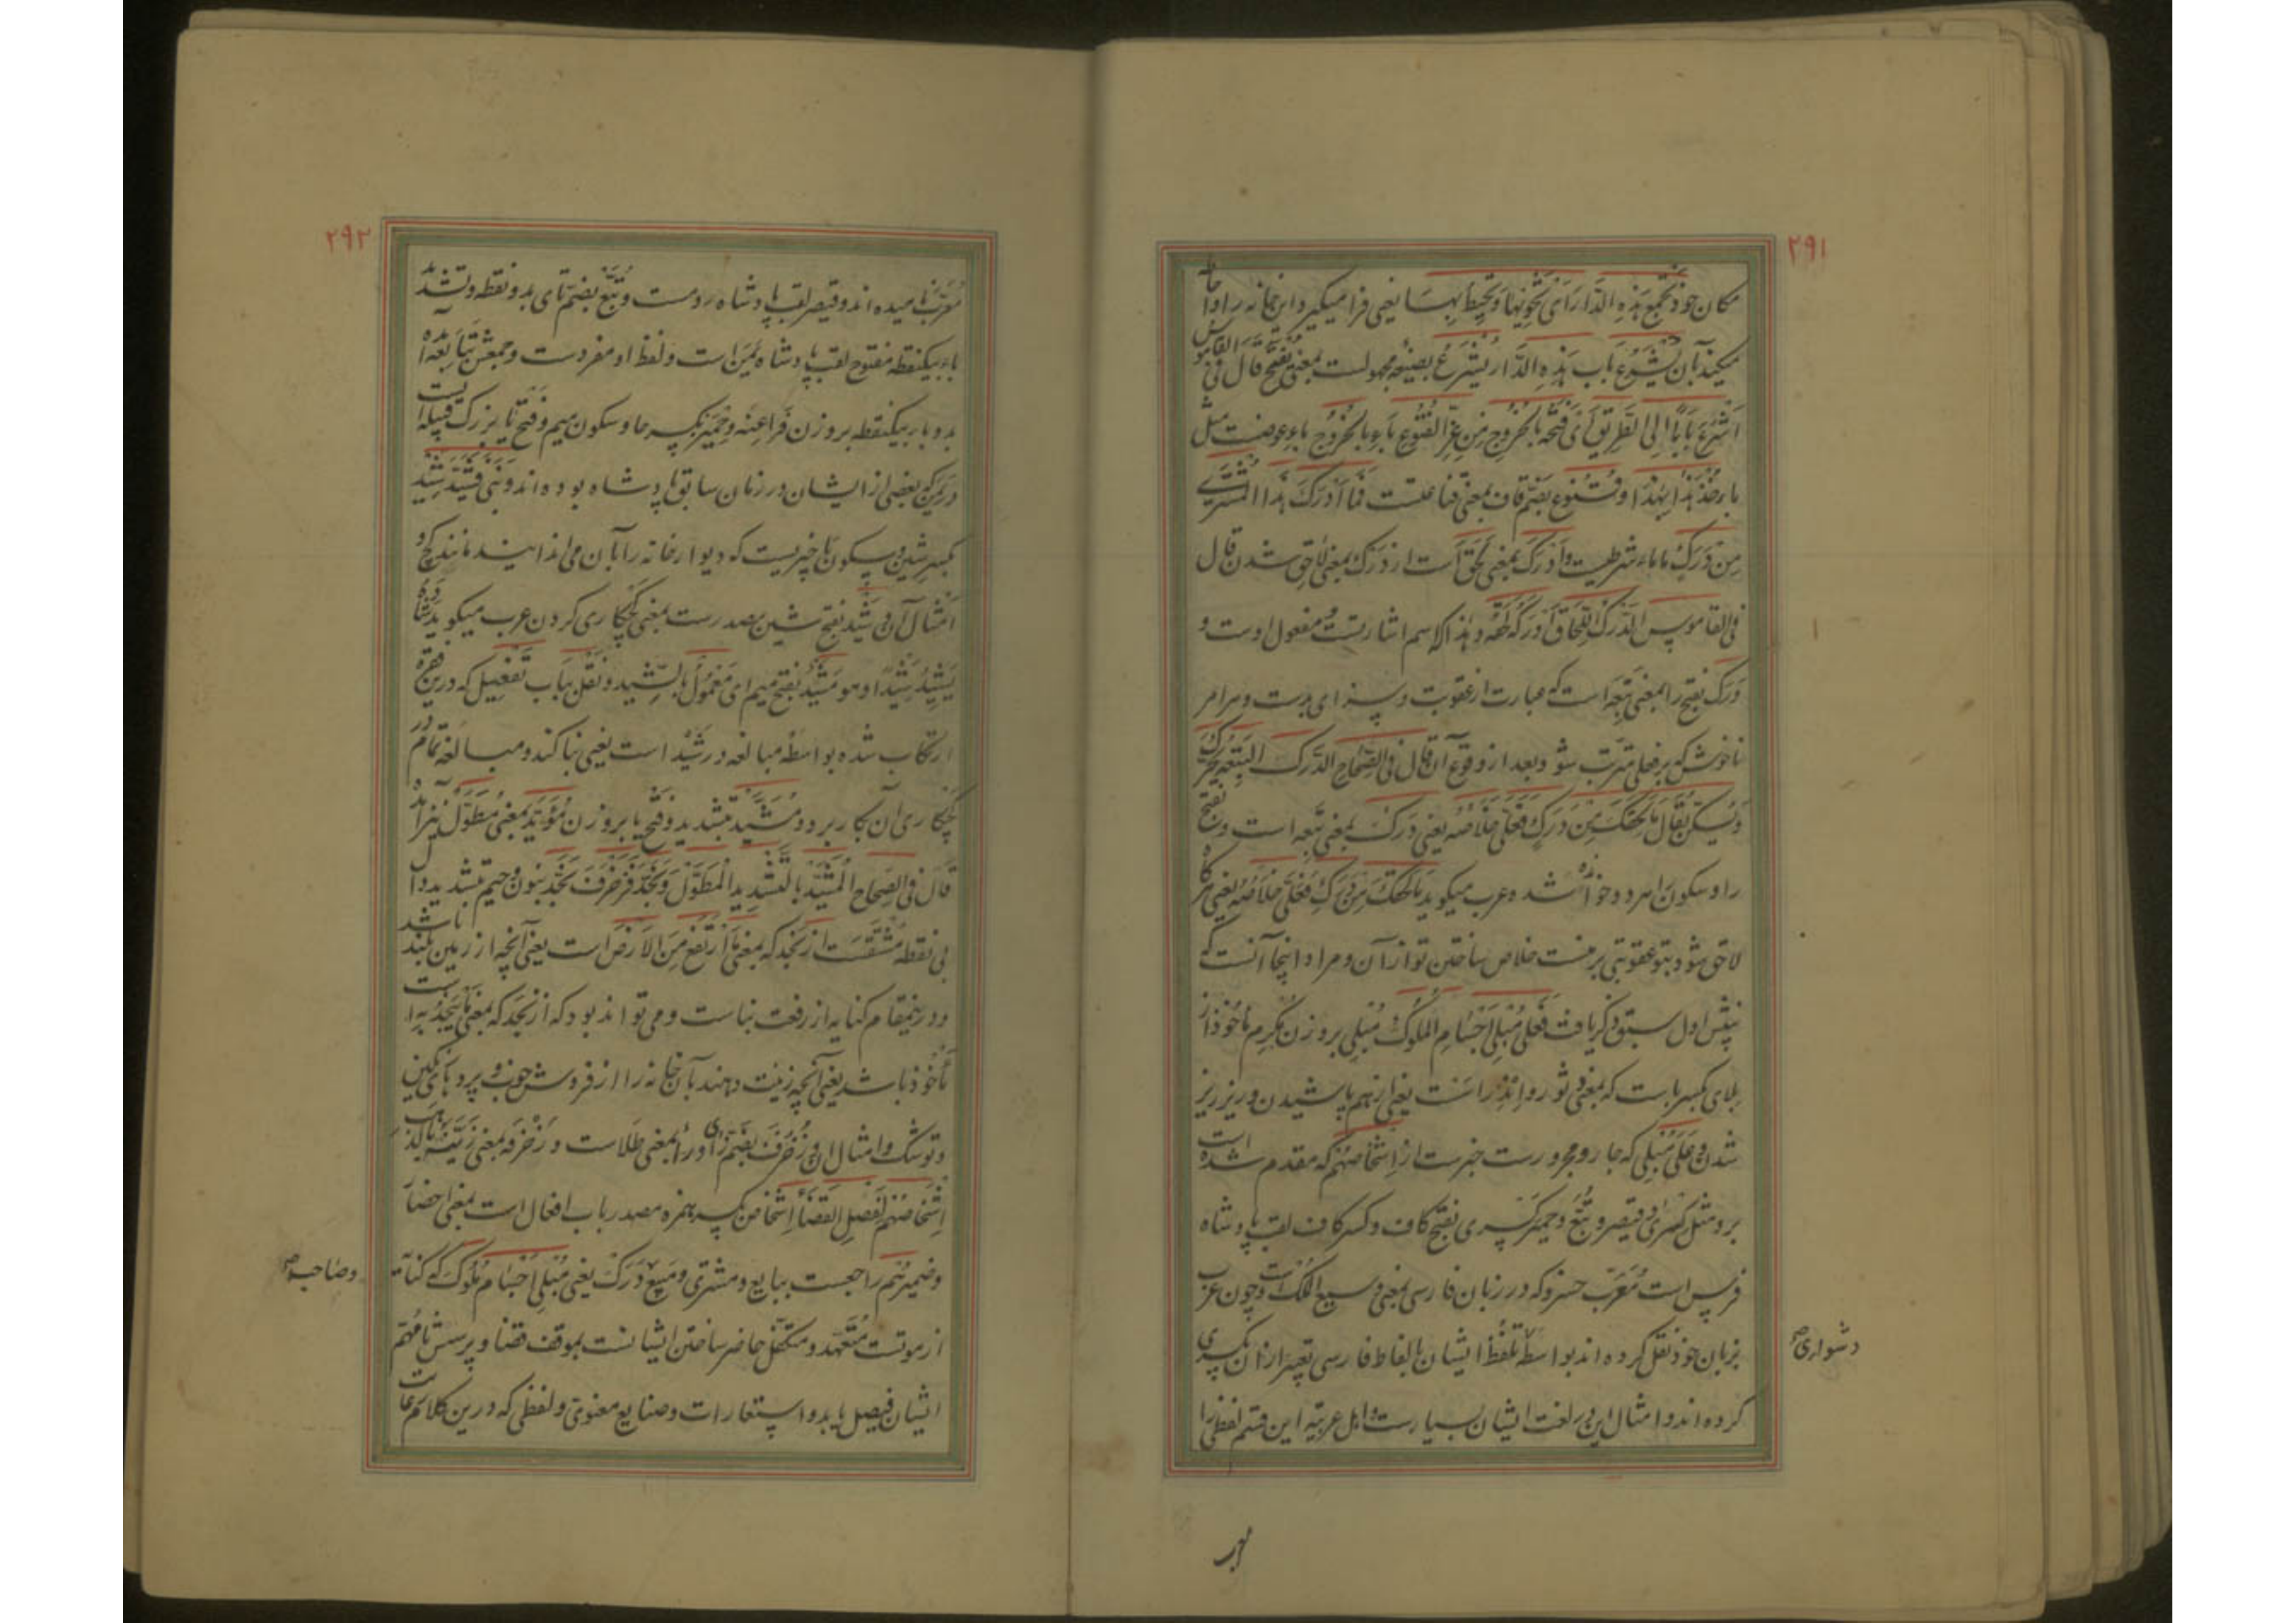 ۲۹۱
مکان خود تجمع هذه الدار رای تحویها و تحیط بها یعنی فرا میگیرد این خانه را و احاطه
میکند بآن یشرع باب هذه الدار یشرع بصیغه مجهولست بمعنی یفتح قال فی القاموس
اشرع بابا الی الطریق ای فتحه بالخروج من عز القنوع باء بالخروج باء عوضست مثل
باء خذ هذا بهذا و قنوع بضم قاف بمعنی قناعتست فما ادرک هذا المشتری
من درک ما ماء شرطیست و ادرک بمعنی لحق است از درک بمعنی لاحق شدن قال
فی القاموس الدرک اللحاق ادرکه لحقه و هذا که اسم اشارتست مفعول اوست و
درک بفتح را بمعنی تبعه است که عبارت از عقوبت و سزای بدست و هر امر
ناخوش که بر فعلی مترتب شود بعد از وقوع آن قال فی الصحاح الدرک التبعه یحرک
و یسکن یقال ما لحقک من درک فعلی خلاصه یعنی درک بمعنی تبعه است و بفتح
را و سکون او هر دو خوانده شده و عرب میگوید ما لحقک من درک فعلی خلاصه یعنی هرگاه
لاحق شود بتو عقوبتی بر منست خلاص ساختن تو از آن و مراد اینجا آنست که
پیش اول سبق ذکر یافت فعلی مبلی اجسام الملوک و مبلی بر وزن مکرم ماخوذ از
بلای بکسر باست که بمعنی دثور و اندراست یعنی از هم پاشیدن و ریز ریز
شدن و علی مبلی که جار و مجرورست خبرست از اشخاصهم که مقدم شده است
برو مثل کسری و قیصر و تبع و حمیر کسری بفتح کاف و کسر کاف لقب پادشاه
فرس است معرب خسرو که در زبان فارسی بمعنی وسیع الملک است و چون عرب
بزبان خود نقل کرده اند بواسطه تلفظ ایشان بالفاظ فارسی تعبیر از آن بکسری
کرده اند و امثال این در لغت ایشان بسیارست و اهل عربیه این قسم لفظ را
دشواری صح
۲۹۲
معرب نامیده اند و قیصر لقب پادشاه رومست و تبع بضم تای بدو نقطه و تشدید
باء بیکنقطه مفتوح لقب پادشاه یمن است و لفظ او مفردست و جمعش تبابعه آمده
بدو باء بیکنقطه بر وزن فراعنه و حمیر بکسر حا و سکون میم و فتح یا بزرگ قبیله ایست
در یمن که بعضی از ایشان در زمان سابق پادشاه بوده اند و بنی فشید شید
بکسر شین و سکون یا چیزیست که دیوار خانه را بآن می اندایند مانند گچ و
امثال آن و شید بفتح شین مصدرست بمعنی گچکاری کردن عرب میگوید شاده
یشیده شیدا و هو مشید بفتح میم ای معمول بالشید و نقل بباب تفعیل که درین فقره
ارتکاب شده بواسطه مبالغه در شید است یعنی بنا کند و مبالغه تمام در
گچکاری آن بکار برد و مشید بتشدید و فتح یا بر وزن مؤید بمعنی مطول نیز آمده
قال فی الصحاح المشید بالتشدید المطول و نجد فزخرف نجد بنون و جیم بتشدید و دال
بی نقطه مشتقست از نجد که بمعنی ما ارتفع من الارض است یعنی آنچه از زمین بلند باشد
و درینمقام کنایه از رفعت بناست و می تواند بود که از نجد که بمعنی ما ینجد به است
ماخوذ باشد یعنی آنچه زینت دهند بآن خانه را از فروش خوب و پردهای رنگین
و توشک و امثال این و زخرف بضم زا و را بمعنی طلاست و زخرفه بمعنی زینه بالذهب
اشخاصهم لفصل القضا اشخاص بکسر همزه مصدر باب افعال است بمعنی احضار
و ضمیر هم راجعست ببایع و مشتری و مبیع درک یعنی مبلی اجسام ملوک که کنایه
از موتست متعهد و متکفل حاضر ساختن ایشانست بموقف قضا و پرسش تا مهم
ایشان فیصل یابد و استعارات و صنایع معنوی و لفظی که درین کلام
و صاحب صح